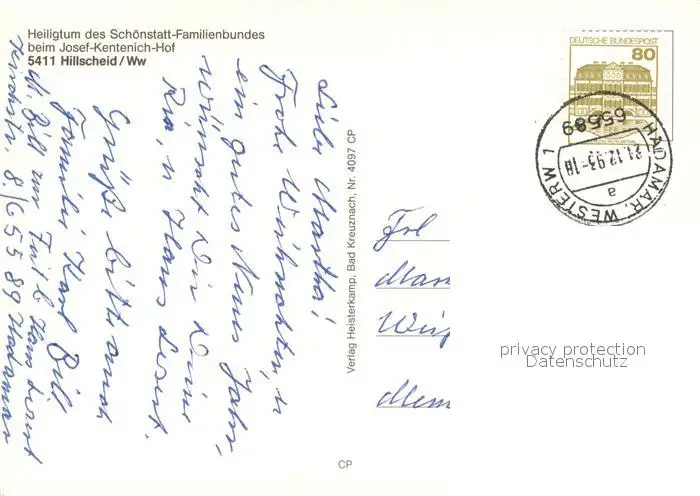 Heiligtum des Schönstatt-Familienbundes
beim Josef-Kentenich-Hof
5411 Hillscheid/Ww
Liebe Martha!
Frohe Weihnachten, u
ein gutes Neues Jahr,
wünscht Dir Deine
Ria, u Hans Liesert.
Grüße bitte auch
Familie Karl Bill
Kirchstr. 8. / 65589 Hadamar
Verlag Heisterkamp, Bad Kreuznach, Nr. 4097 CP
CP
DEUTSCHE BUNDESPOST
80
65589
21.12.93-18
a
HADAMAR, WESTERW 1
Frl
privacy protection
Datenschutz